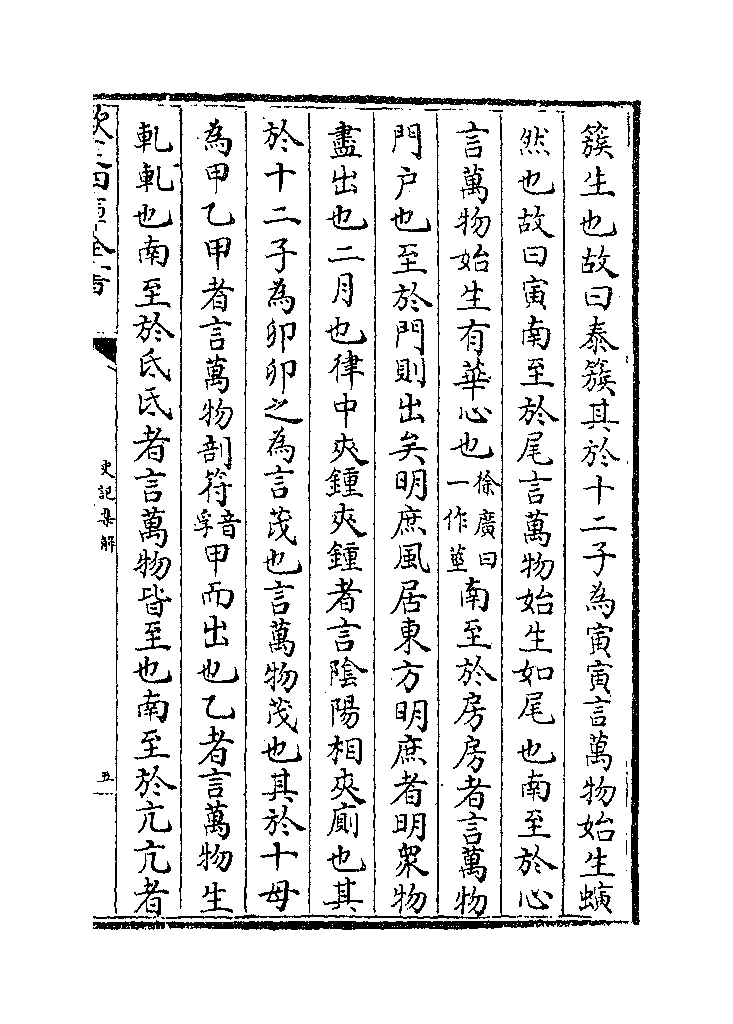 簇生也故曰泰簇其於十二子為寅寅言萬物始生螾
然也故曰寅南至於尾言萬物始生如尾也南至於心
言萬物始生有華心也徐廣曰一作莖南至於房房者言萬物
門户也至於門則出矣明庶風居東方明庶者明衆物
盡出也二月也律中夾鍾夾鍾者言陰陽相夾廁也其
於十二子為卯卯之為言茂也言萬物茂也其於十母
為甲乙甲者言萬物剖符音孚甲而出也乙者言萬物生
軋軋也南至於氐氐者言萬物皆至也南至於亢亢者
欽定四庫全書
史記集解
五